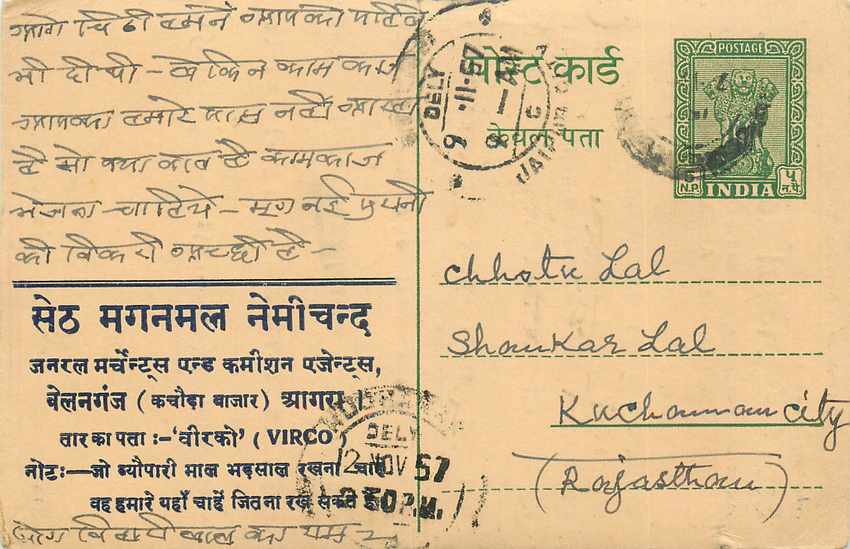 आगे चिठी हमने आपको पहिले
भी दी थी - लेकिन काम काज
आपका हमारे पास नहीं आया
है सो क्या बात है कामकाज
भेजना चाहिये - मूग नई पुरानी
की बिकरी अच्छी है -
सेठ मगनमल नेमीचन्द
जनरल मर्चेन्ट्स एन्ड कमीशन एजेन्ट्स,
बेलनगंज (कचौड़ा बाजार) आगरा
तार का पता :- 'वीरको' (VIRCO)
नोटः—जो ब्यौपारी माल भड़साल रखना चाहें
वह हमारे यहाँ चाहें जितना रख सकते हैं
पोस्ट कार्ड
केवल पता
POSTAGE
5 N.P.
INDIA
५ न.पै.
DELY
9 - 11 - 57
8 - AM
JAIPUR
DELY
12 NOV 57
2 50 P.M.
Chhotu Lal
Shankar Lal
Kuchaman city
(Rajasthan)